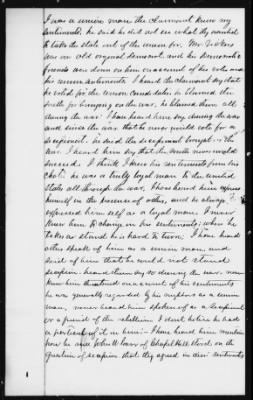 I was a union man the claimant knew my
sentiments, he said he did not see what they wanted
to take the state out of the union for. Mr Vickers
was an old original democrat and his democratic
friends was down on him on account of his vote and
his union sentiments I heard the claimant say that
he voted for the union candidates he blamed the
south for bringing on the war, he blamed them all
during the war. I have heard him say during the war
and since the war that he never would vote for a
secessionist. he said the secessionist brought on the
war. I heard him say that the south never would
succeed. I think I knew his sentiments from his
he was a truly loyal man to the united
States all through the war. I have heard him express
himself in the presence of others, and he always
expressed himself as a loyal man. I never
knew him to change in his sentiments, when he
takes a stand it is hard to turn. I have heard
others speak of him as a union man, and
said of him that he would not stand
secession. heard them say so during the war. now
knew him threatened on account of his sentiments
he was generally regarded by his neighbors as a union
man, never heard him spoken of as a secessionist
or a friend of the rebellion I don't believe he had
a particle of it in him:- I have heard him mention
how he and John W Carr of Chapel Hill stood on the
question of secession that they agreed in their sentiments